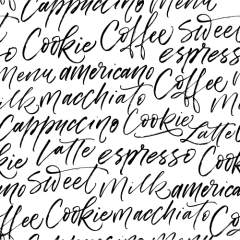 Cappuccino Menu
Cookie Coffee sweet
espresso
menu americano Coffee
Milk macchiato
Cappuccino Cookie Latte
kie latte espresso Cook
sweet Milk america
ffee Cookie macchiato